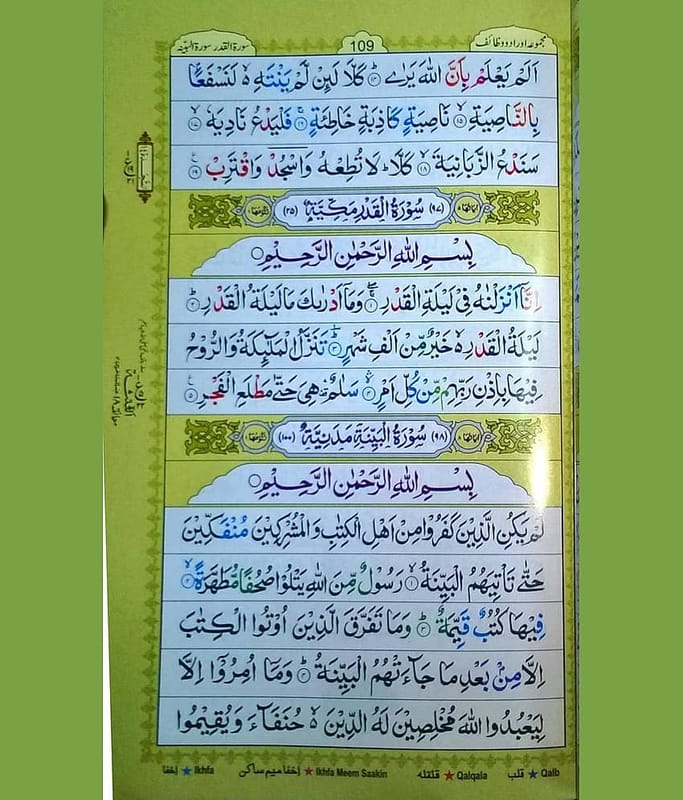 مجموعہ اوراد و وظائف
109
سورة القدر سورة البیّنہ
اَلَمْ يَعْلَمْ بِاَنَّ اللّٰهَ يَرٰىؕ ۝۱۴ كَلَّا لَئِنْ لَّمْ يَنْتَهِ ۙ۬ لَنَسْفَعًۢا
بِالنَّاصِيَةِۙ ۝۱۵ نَاصِيَةٍ كَاذِبَةٍ خَاطِئَةٍۚ ۝۱۶ فَلْيَدْعُ نَادِيَهٗۙ ۝۱۷
سَنَدْعُ الزَّبَانِيَةَۙ ۝۱۸ كَلَّاؕ لَا تُطِعْهُ وَاسْجُدْ وَاقْتَرِبْ ۝۱۹
اٰیَاتُهَا ۵ (۹۷) سُوْرَةُ الْقَدْرِ مَكِّيَّةٌ (۲۵) رُكُوْعُهَا ۱
بِسْمِ اللّٰهِ الرَّحْمٰنِ الرَّحِيْمِ
اِنَّاۤ اَنْزَلْنٰهُ فِيْ لَيْلَةِ الْقَدْرِۚۖ ۝۱ وَمَاۤ اَدْرٰىكَ مَا لَيْلَةُ الْقَدْرِؕ ۝۲
لَيْلَةُ الْقَدْرِ ۙ۬ خَيْرٌ مِّنْ اَلْفِ شَهْرٍؕ ۝۳ تَنَزَّلُ الْمَلٰٓئِكَةُ وَالرُّوْحُ
فِيْهَا بِاِذْنِ رَبِّهِمْ مِّنْ كُلِّ اَمْرٍۙ ۝۴ سَلٰمٌ ۛ۫ هِيَ حَتّٰى مَطْلَعِ الْفَجْرِ ۝۵
اٰیَاتُهَا ۸ (۹۸) سُوْرَةُ الْبَيِّنَةِ مَدَنِيَّةٌ (۱۰۰) رُكُوْعُهَا ۱
بِسْمِ اللّٰهِ الرَّحْمٰنِ الرَّحِيْمِ
لَمْ يَكُنِ الَّذِيْنَ كَفَرُوْا مِنْ اَهْلِ الْكِتٰبِ وَالْمُشْرِكِيْنَ مُنْفَكِّيْنَ
حَتّٰى تَاْتِيَهُمُ الْبَيِّنَةُۙ ۝۱ رَسُوْلٌ مِّنَ اللّٰهِ يَتْلُوْا صُحُفًا مُّطَهَّرَةًۙ ۝۲
فِيْهَا كُتُبٌ قَيِّمَةٌؕ ۝۳ وَمَا تَفَرَّقَ الَّذِيْنَ اُوْتُوا الْكِتٰبَ
اِلَّا مِنْۢ بَعْدِ مَا جَآءَتْهُمُ الْبَيِّنَةُؕ ۝۴ وَمَاۤ اُمِرُوْۤا اِلَّا
لِيَعْبُدُوا اللّٰهَ مُخْلِصِيْنَ لَهُ الدِّيْنَ ۙ۬ حُنَفَآءَ وَيُقِيْمُوا
قلب ★ Qalb قلقلہ ★ Qalqala اخفا میم ساکن ★ Ikhfa Meem Saakin اخفا ★ Ikhfa